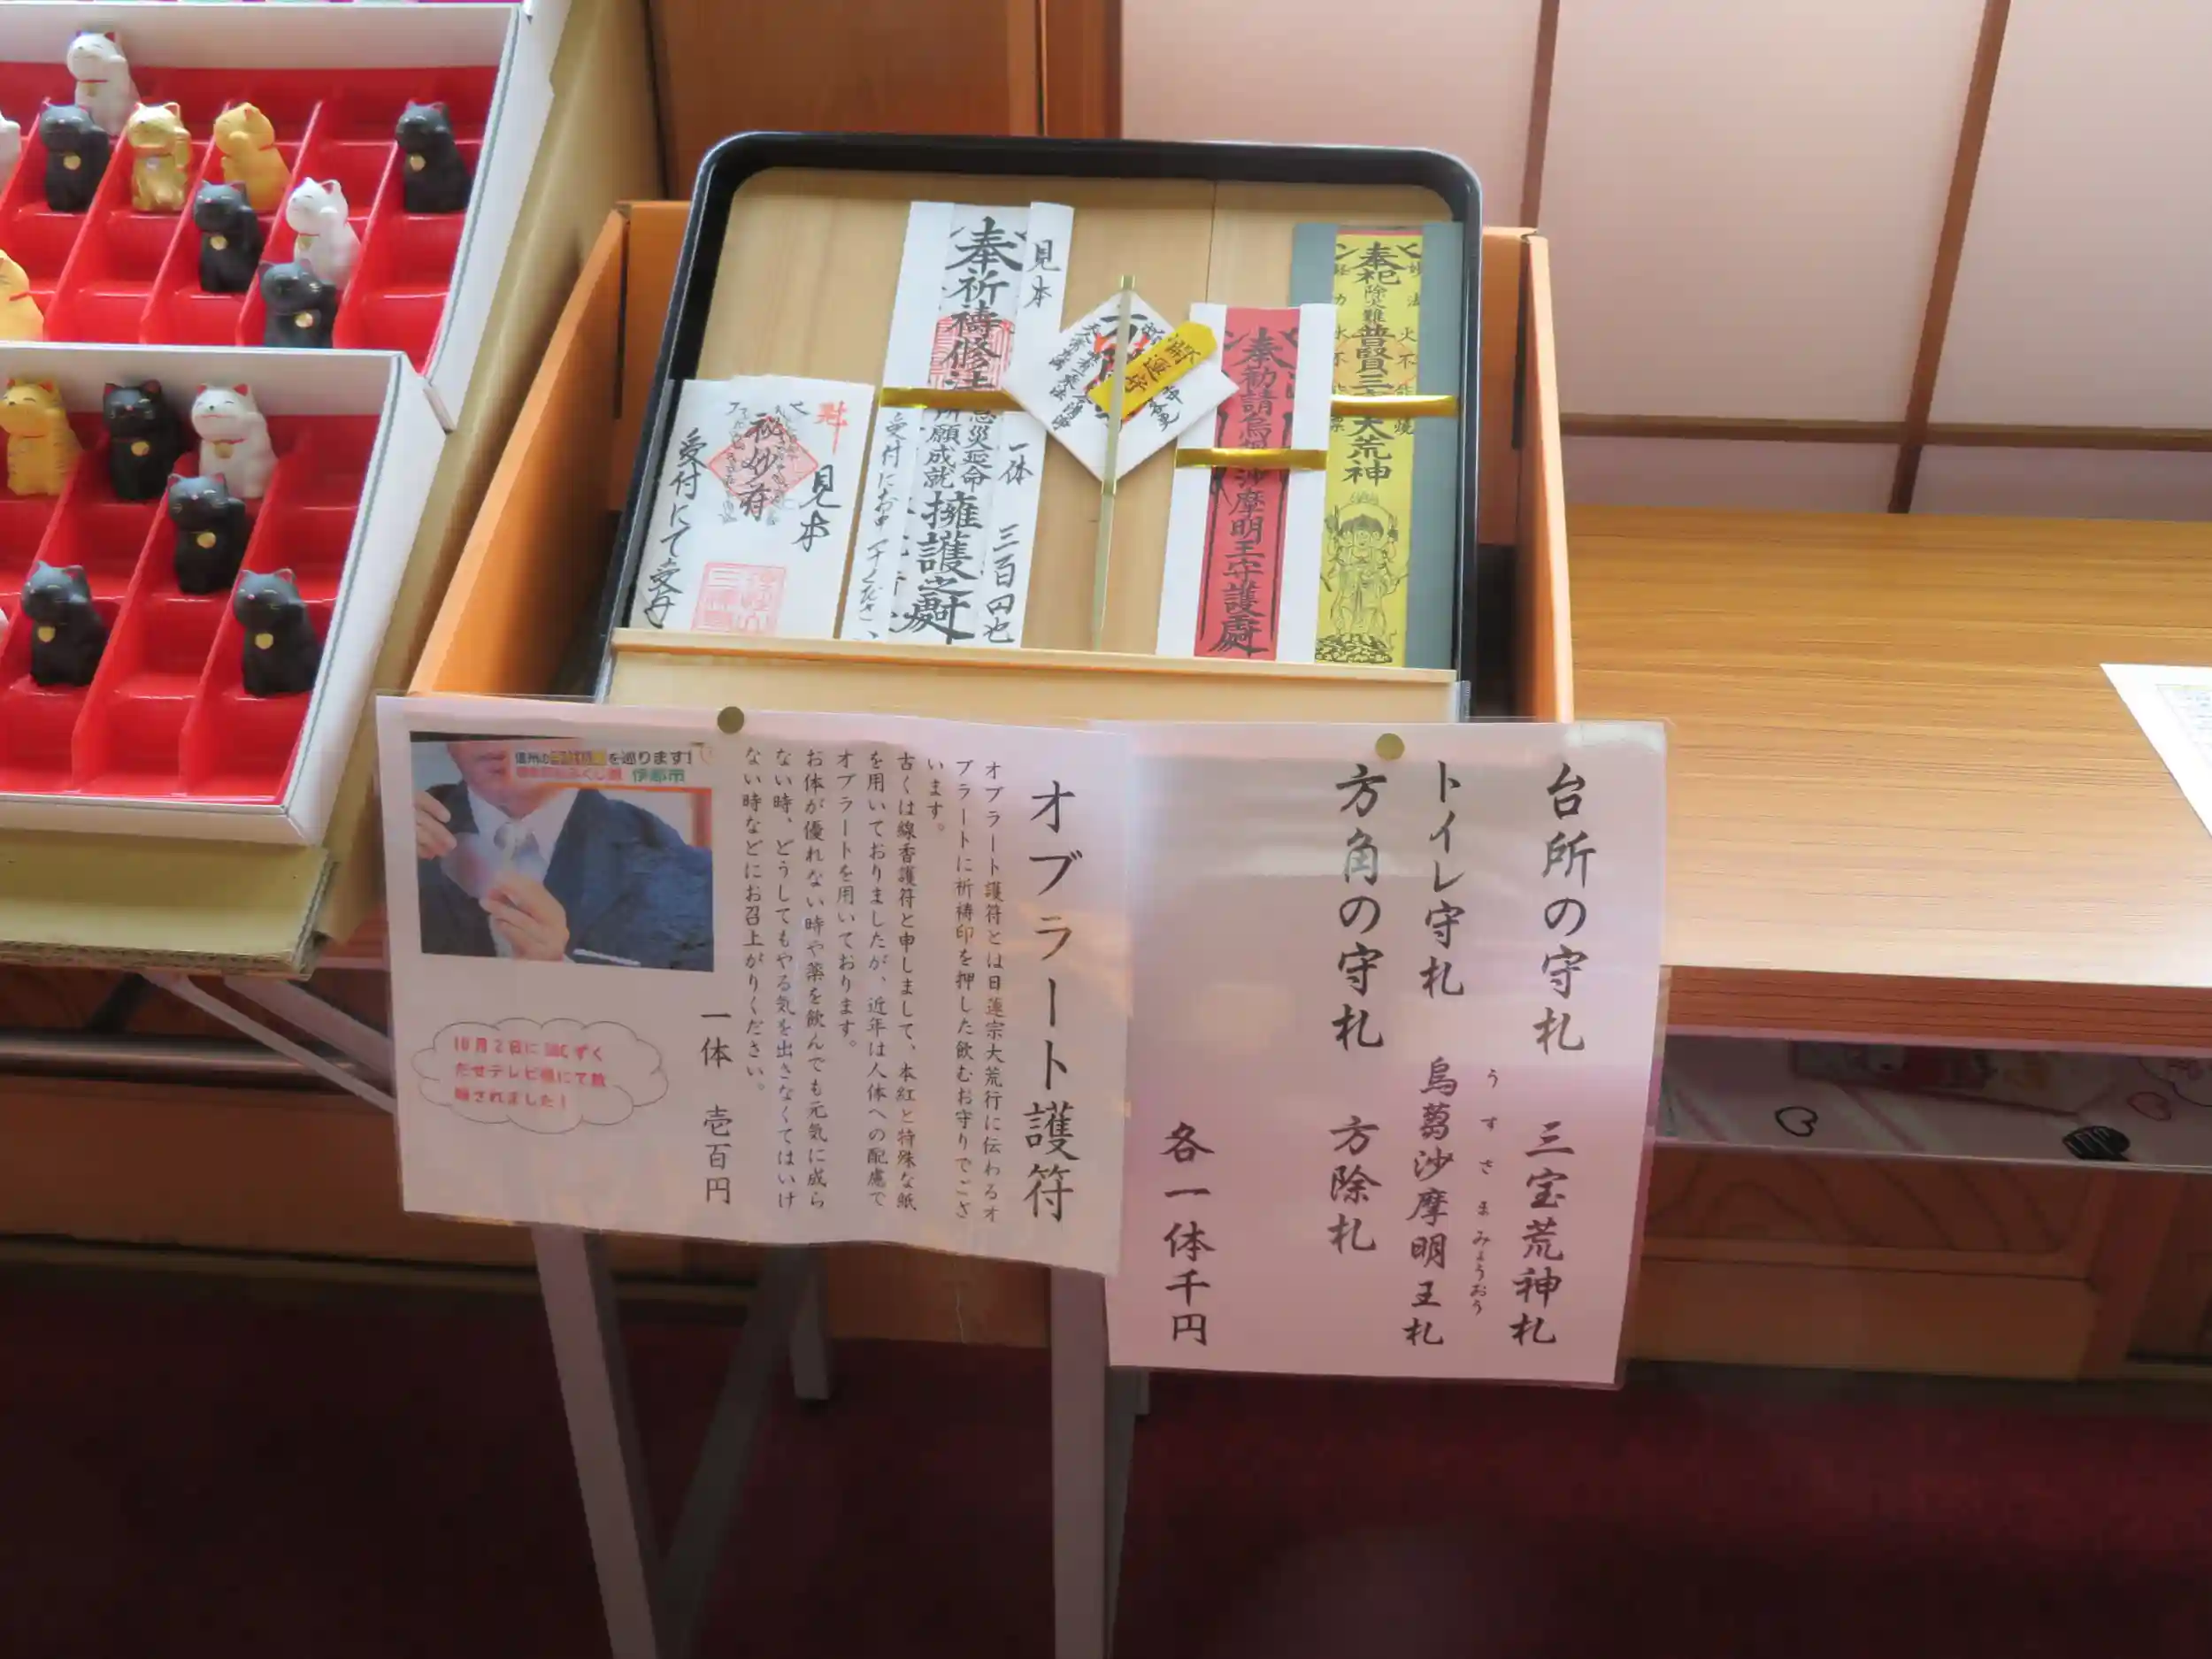 見本
奉祈禱修法
息災延命
所願成就
擁護之
一体 三百円也
魁
秘妙符
見本
受付にて受付
開運守
奉勧請烏
沙摩明王守護
妙法
奉祀除火難普賢三
大荒神
火不能焼
水不能
オブラート護符
オブラート護符とは日蓮宗大荒行に伝わるオ
ブラートに祈祷印を押した飲むお守りでござ
います。
古くは線香護符と申しまして、本紅と特殊な紙
を用いておりましたが、近年は人体への配慮で
オブラートを用いております。
お体が優れない時や薬を飲んでも元気に成ら
ない時、どうしてもやる気を出さなくてはいけ
ない時などにお召上がりください。
一体 壱百円
を巡ります!
伊那市
10月2日にSBCずく
だせテレビ様にて放
映されました!
台所の守札 三宝荒神札
うすさまみょうおう
トイレ守札 烏蒭沙摩明王札
方角の守札 方除札
各一体千円